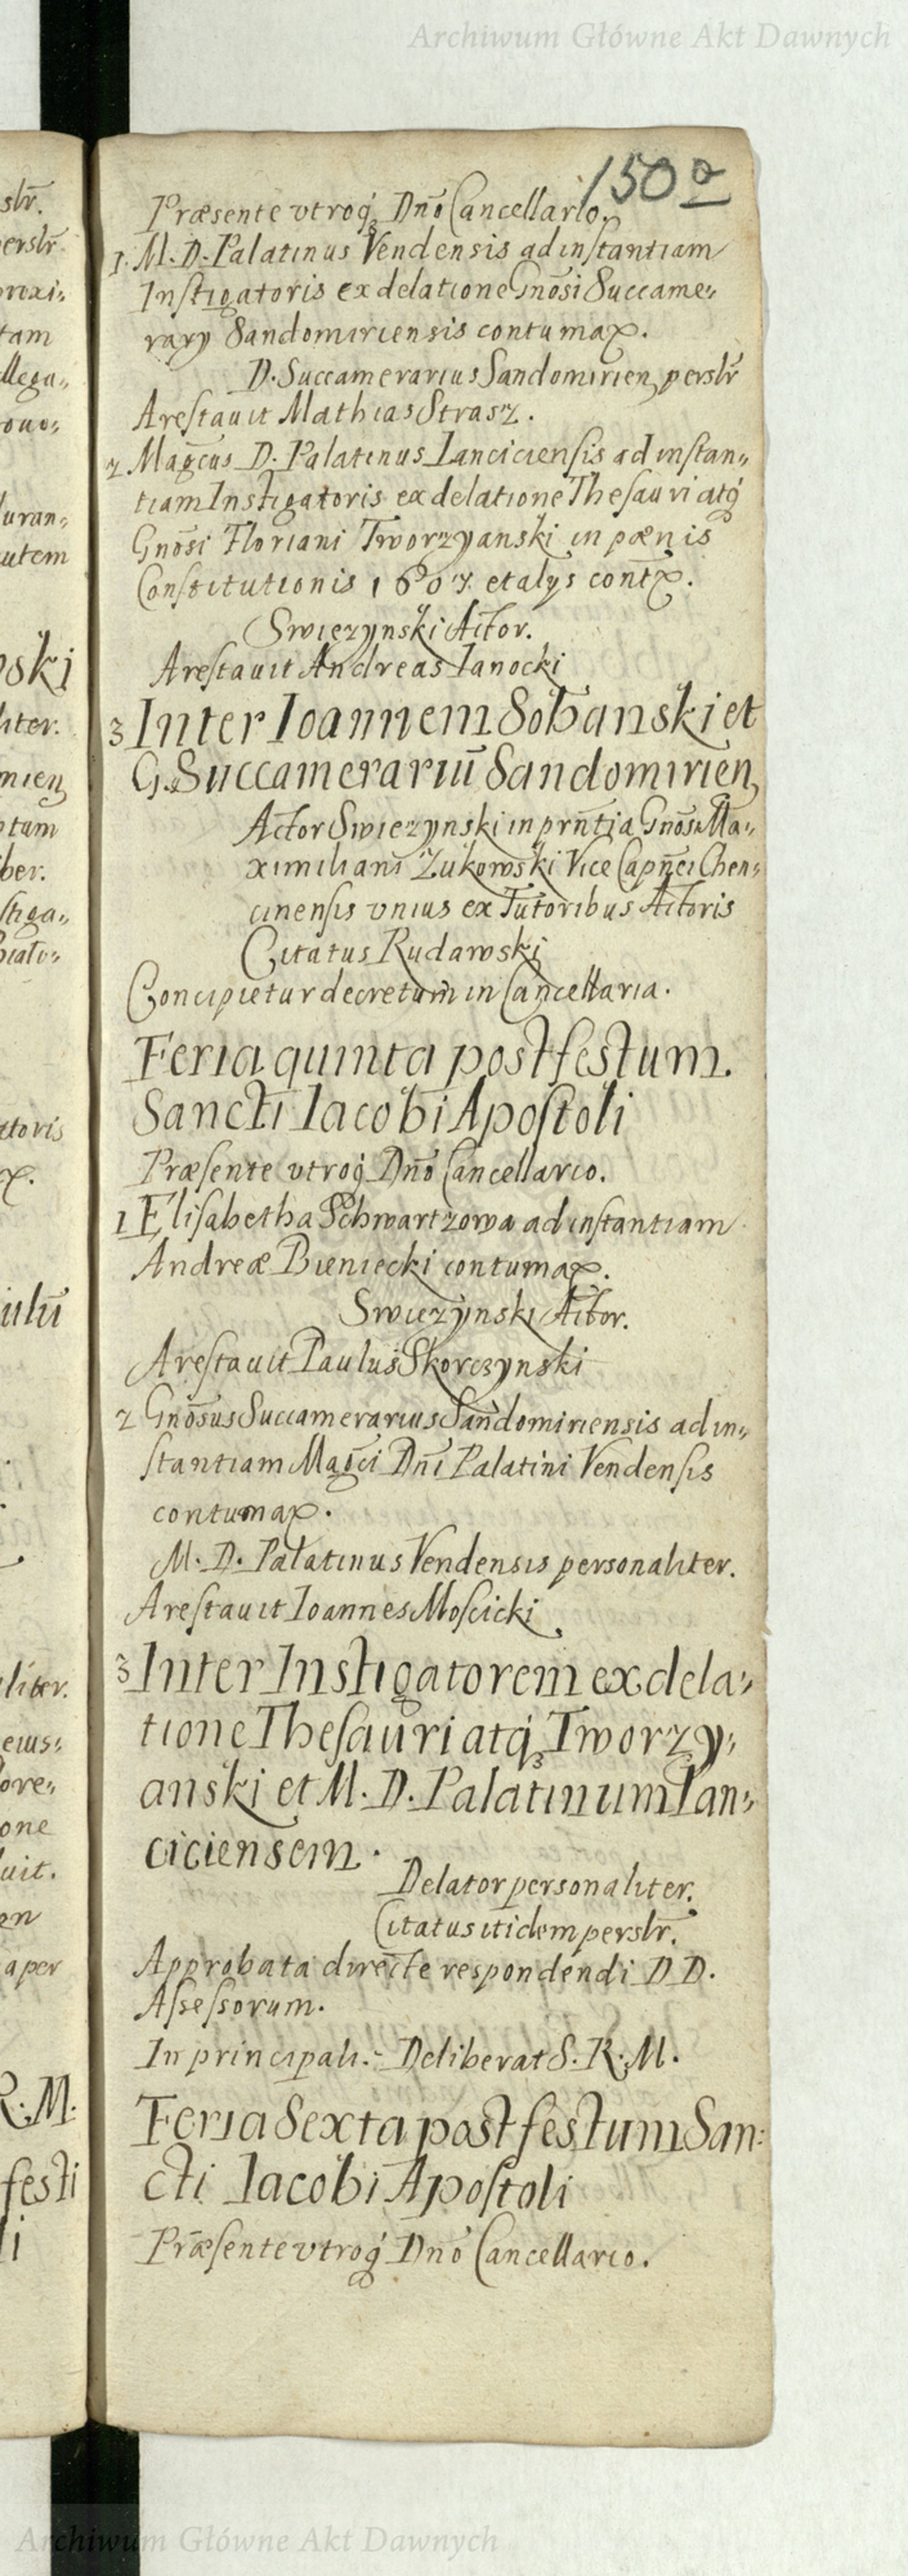 Archiwum Główne Akt Dawnych
150 a
Præsente vtroq́ꝫ Dnō Cancellario.
1. M. D. Palatinus Vendensis ad instantiam
Instigatoris ex delatione Gnōsi Succame„
rarij Sandomiriensis contumax.
D. Succamerarius Sandomirien, perslr̄
Arestauit Mathias Strasz.
2 Magc̄us D. Palatinus Lanciciensis ad instan„
tiam Instigatoris ex delatione Thesauri atq́
Gnōsi Floriani Tworzyanski in pænis
Constitutionis 1607 et alijs contx̄.
Swiezynski Actor.
Arestauit Andreas Ianocki
3 Inter Ioannem Sobanski et
G. Succamerariū Sandomirien,
Actor Swiezynski in prn̄tia Gnōsi Ma„
ximiliani Zukowski Vice Capn̄ei Chen„
cinensis vnius ex Tutoribus Actoris
Citatus Rudawski
Concipietur decretum in Cancellaria.
Feria quinta post festum
Sancti Iacobi Apostoli
Præsente vtroq́ Dnō Cancellario.
1 Elisabetha Schwartzowa ad instantiam
Andreæ Bieniecki contumax.
Swiezynski Actor.
Arestauit Paulus Skorczynski
2 Gnōsus Succamerarius Sandomiriensis ad in„
stantiam Magc̄i Dnī Palatini Vendensis
contumax.
M. D. Palatinus Vendensis personaliter.
Arestauit Ioannes Moscicki
3 Inter Instigatorem ex dela„
tione Thesauri atq́ꝫ Tworzy„
anski et M. D. Palatinum Lan„
ciciensem.
Delator personaliter.
Citatus itidem perslr̄.
Approbata directe respondendi D D.
Assessorum.
In principali.- Deliberat S. R. M.
Feria Sexta post festum San:
cti Iacobi Apostoli
Præsente vtroq́ Dnō Cancellario.
Archiwum Główne Akt Dawnych